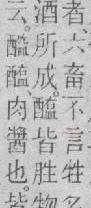 者、六畜不言牲名
酒所成。醢皆胜物
云。醯醢肉醬也。皆